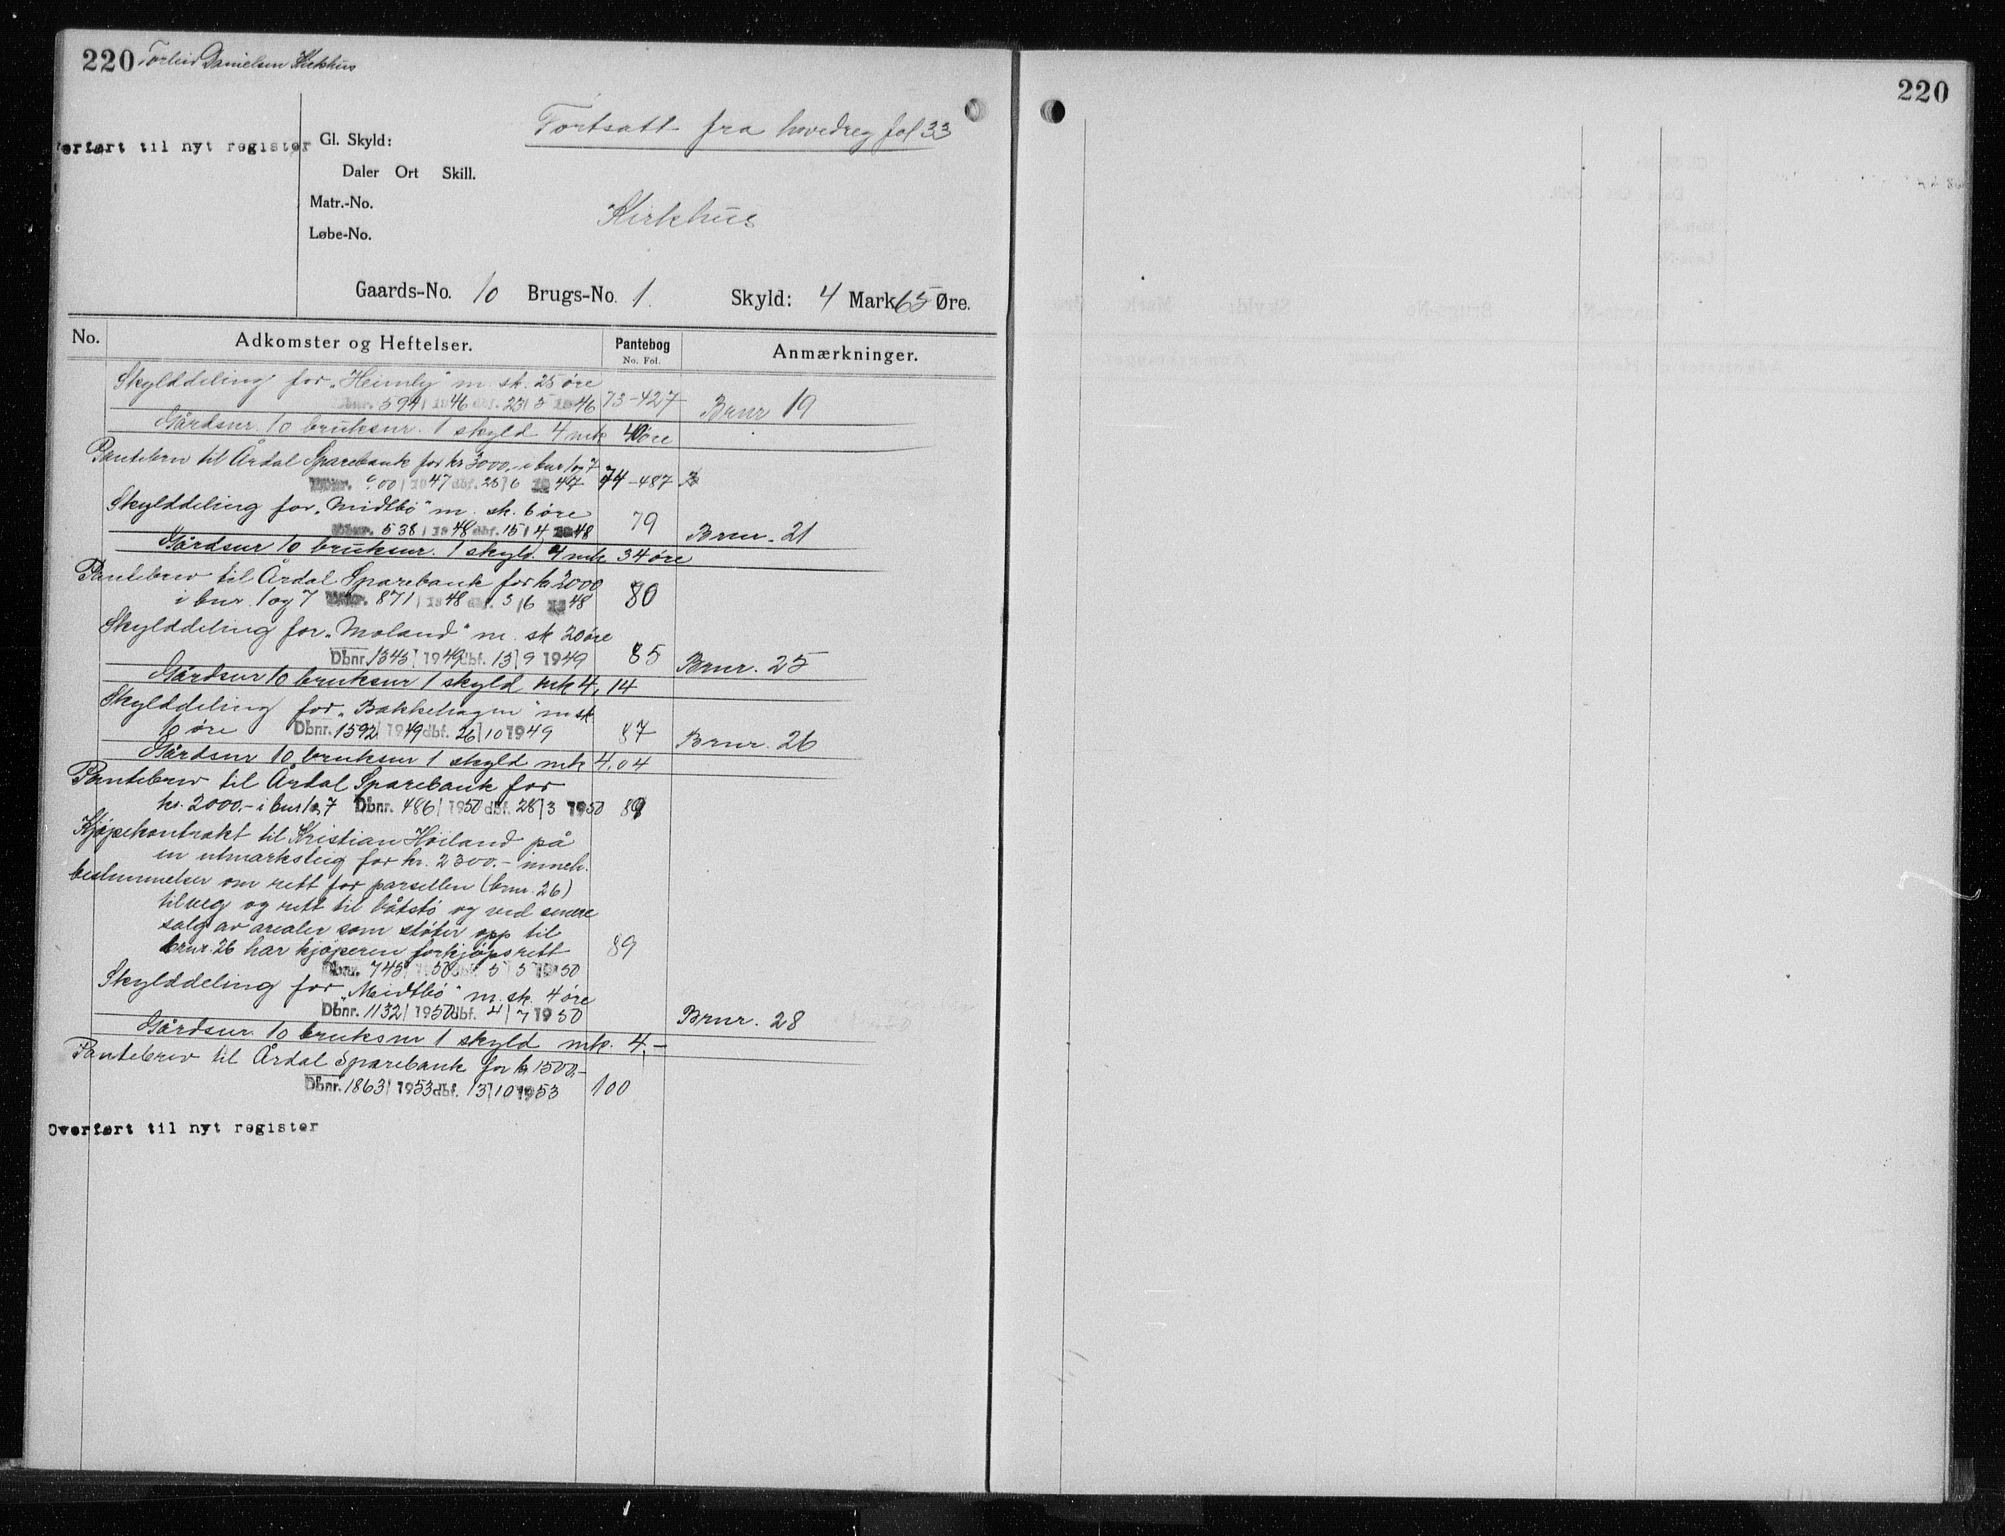 220 Torleiv Danielsen Kirkhus
Fortsatt fra hovedreg fol 33
erført til nyt register
Gl. Skyld:
Daler Ort Skill.
Matr.-No.
Kirkhus
Løbe-No.
Gaards-No. 10 Brugs-No. 1. Skyld: 4 Mark 65 Øre.
No. Adkomster og Heftelser. Pantebog No. Fol. Anmærkninger.
Skylddeling for "Heimly" m. sk. 25 øre
Dbnr. 594 | 1946 dbf. 23 | 5 1946 73-427 Brnr 19
Gårdsnr. 10 bruksnr. 1 skyld 4 mk 40 øre
Pantebrev til Årdal Sparebank for kr 3000,- i bnr 1 og 7
Dbnr. 900 | 1947 dbf. 25 | 6 1947 74-487
Skylddeling for "Midtbö" m. sk. 6 øre
Dbnr. 538 | 1948 dbf. 15 | 4 1948 79 Brnr. 21
Gårdsnr 10 bruksnr. 1 skyld. 4 mk 34 øre
Pantebrev til Årdal Sparebank for kr 2000
i bnr. 1 og 7 Dbnr. 871 | 1948 dbf. 3 | 6 1948 80
Skylddeling for "Moland" m. sk 20 øre
Dbnr. 1345 | 1949 dbf. 13 | 9 1949 85 Brnr. 25
Gårdsnr 10 bruksnr 1 skyld mk 4,14
Skylddeling for "Bakkehagen" m sk
10 øre Dbnr. 1592 | 1949 dbf. 26 | 10 1949 87 Brnr. 26
Gårdsnr 10 bruksnr 1 skyld mk 4.04
Pantebrev til Årdal Sparebank for
kr. 2000,- i bnr 1 og 7 Dbnr. 486 | 1950 dbf. 28 | 3 1950 89
Kjøpekontrakt til Kristian Høiland på
en utmarksteig for kr. 2300.- inneh.
bestemmelser om rett for parsellen (brnr. 26)
til veg og rett til båtstö og ved senere
salg av arealer som støter opp til
brnr. 26 har kjøperen forkjøpsrett 89
Dbnr. 745 | 1950 dbf. 5 | 5 1950
Skylddeling for "Meidtbö" m. sk. 4 øre
Dbnr. 1132 | 1950 dbf. 4 | 7 1950 Brnr. 28
Gårdsnr. 10 bruksnr 1 skyld mk. 4,-
Pantebrev til Årdal Sparebank for kr 1500,-
Dbnr. 1863 | 1953 dbf. 13 | 10 1953 100
Overført til nyt register
220